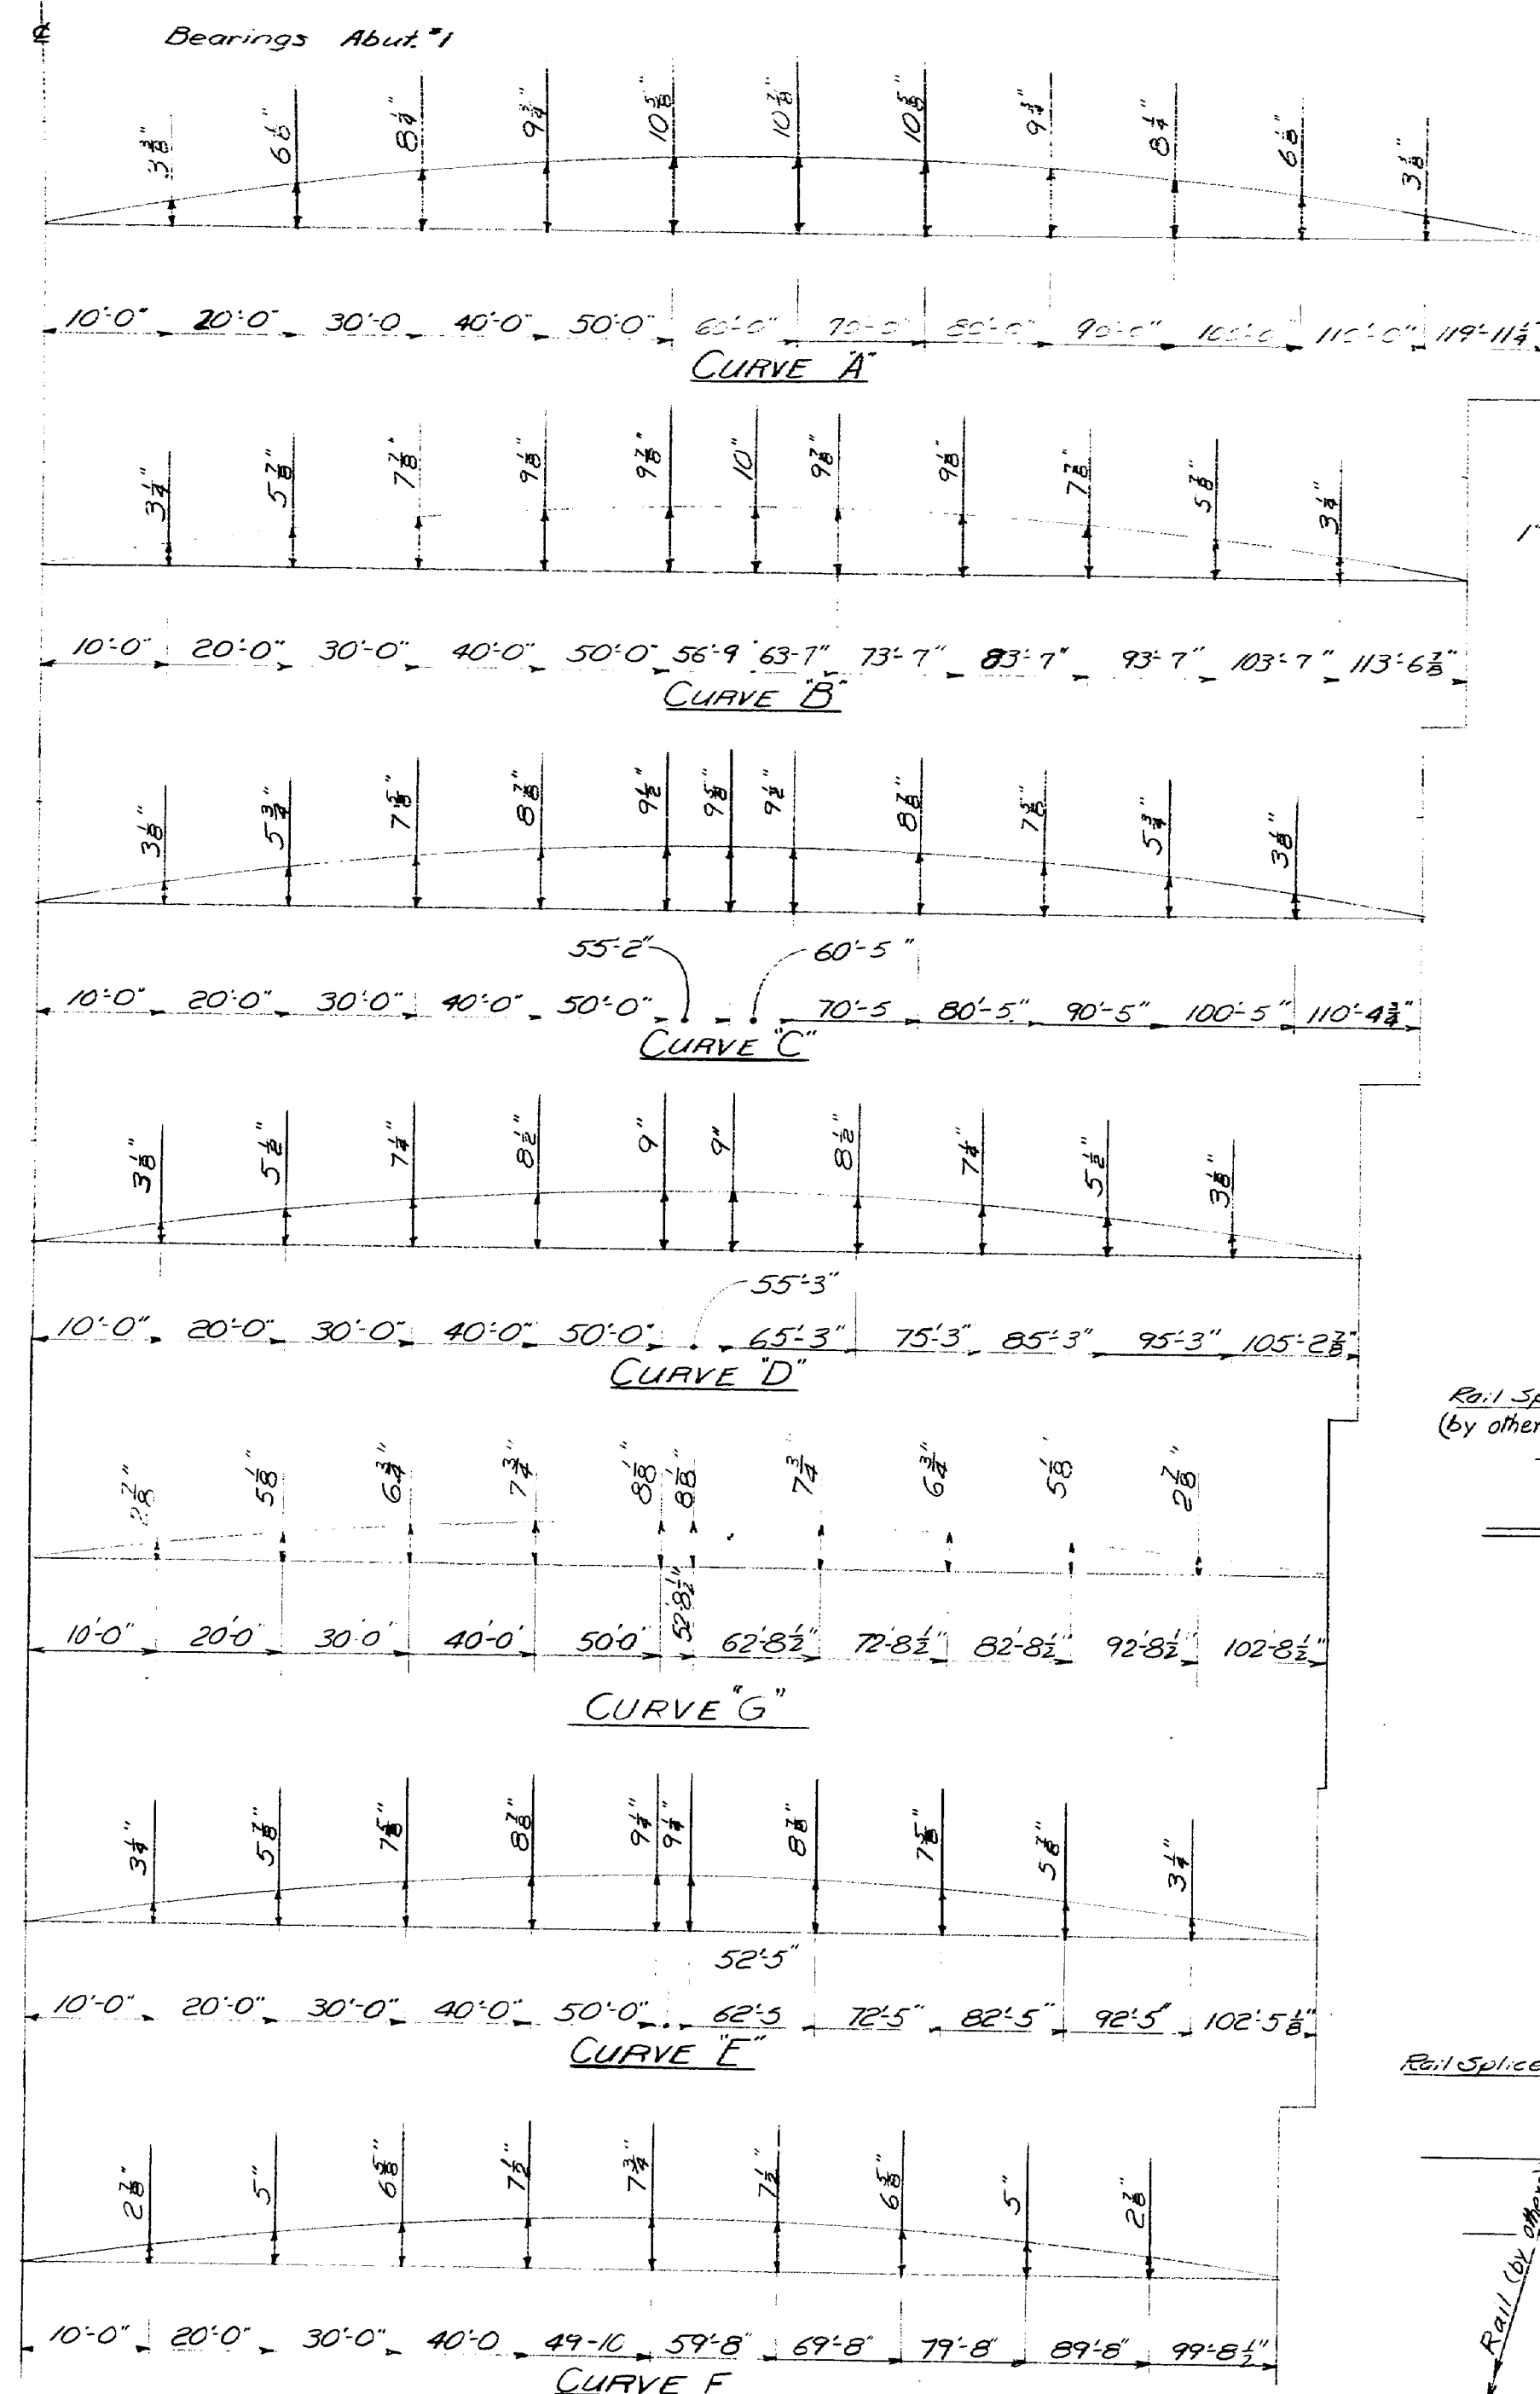 ℄ Bearings Abut. #1
3 3/8" 6 1/8" 8 1/4" 9 3/4" 10 5/8" 10 7/8" 10 5/8" 9 3/4" 8 1/4" 6 1/8" 3 3/8"
10'-0" 20'-0" 30'-0 40'-0" 50'-0" 60'-0" 70'-0" 80'-0" 90'-0" 100'-0" 110'-0" 119'-11 1/4"
CURVE "A"
3 1/4" 5 7/8" 7 7/8" 9 1/8" 9 7/8" 10" 9 7/8" 9 1/8" 7 7/8" 5 7/8" 3 1/4"
1"
10'-0" 20'-0" 30'-0" 40'-0" 50'-0" 56'-9 63-7" 73'-7" 83'-7" 93'-7" 103'-7" 113'-6 7/8"
CURVE "B"
3 1/8" 5 3/4" 7 5/8" 8 7/8" 9 1/2" 9 5/8" 9 1/2" 8 7/8" 7 5/8" 5 3/4" 3 1/8"
55'-2" 60'-5"
10'-0" 20'-0" 30'-0" 40'-0" 50'-0" 70'-5 80'-5" 90'-5" 100'-5" 110'-4 3/4"
CURVE "C"
3 1/8" 5 1/2" 7 1/4" 8 1/2" 9" 9" 8 1/2" 7 1/4" 5 1/2" 3 1/8"
55'-3"
10'-0" 20'-0" 30'-0" 40'-0" 50'-0" 65'-3" 75'-3" 85'-3" 95'-3" 105'-2 7/8"
CURVE "D"
Rail Sp
(by other
2 7/8" 5 1/8" 6 3/4" 7 3/4" 8 1/8" 8 1/8" 7 3/4" 6 3/4" 5 1/8" 2 7/8"
10'-0" 20'-0" 30'-0' 40'-0' 50'-0" 52'-8 1/2" 62'-8 1/2" 72'-8 1/2" 82'-8 1/2" 92'-8 1/2" 102'-8 1/2"
CURVE "G"
3 1/4" 5 7/8" 7 5/8" 8 7/8" 9 1/4" 9 1/4" 8 7/8" 7 5/8" 5 7/8" 3 1/4"
52'-5"
10'-0" 20'-0" 30'-0" 40'-0" 50'-0" 62'-5 72'-5" 82'-5" 92'-5" 102'-5 1/8"
CURVE "E"
Rail Splice
2 7/8" 5" 6 5/8" 7 1/2" 7 3/4" 7 1/2" 6 5/8" 5" 2 7/8"
Rail (by others)
10'-0" 20'-0" 30'-0" 40'-0 49-10 59'-8" 69'-8" 79'-8" 89'-8" 99'-8 1/2"
CURVE F